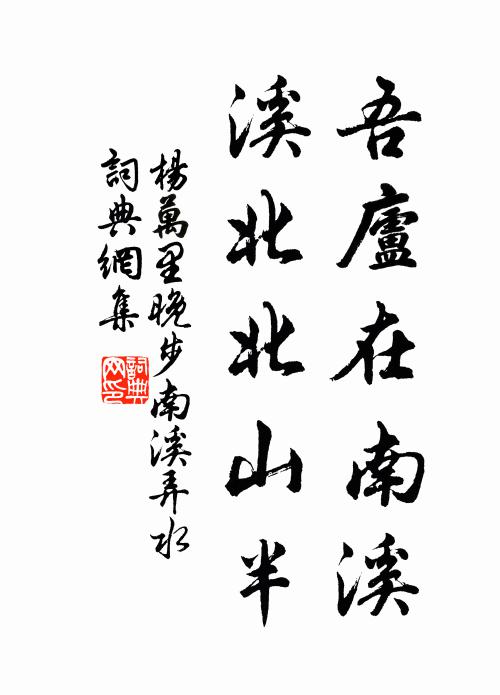 吾廬在南溪
溪北北山半
楊萬里晚步南溪弄水
詞典網集
詞典網印